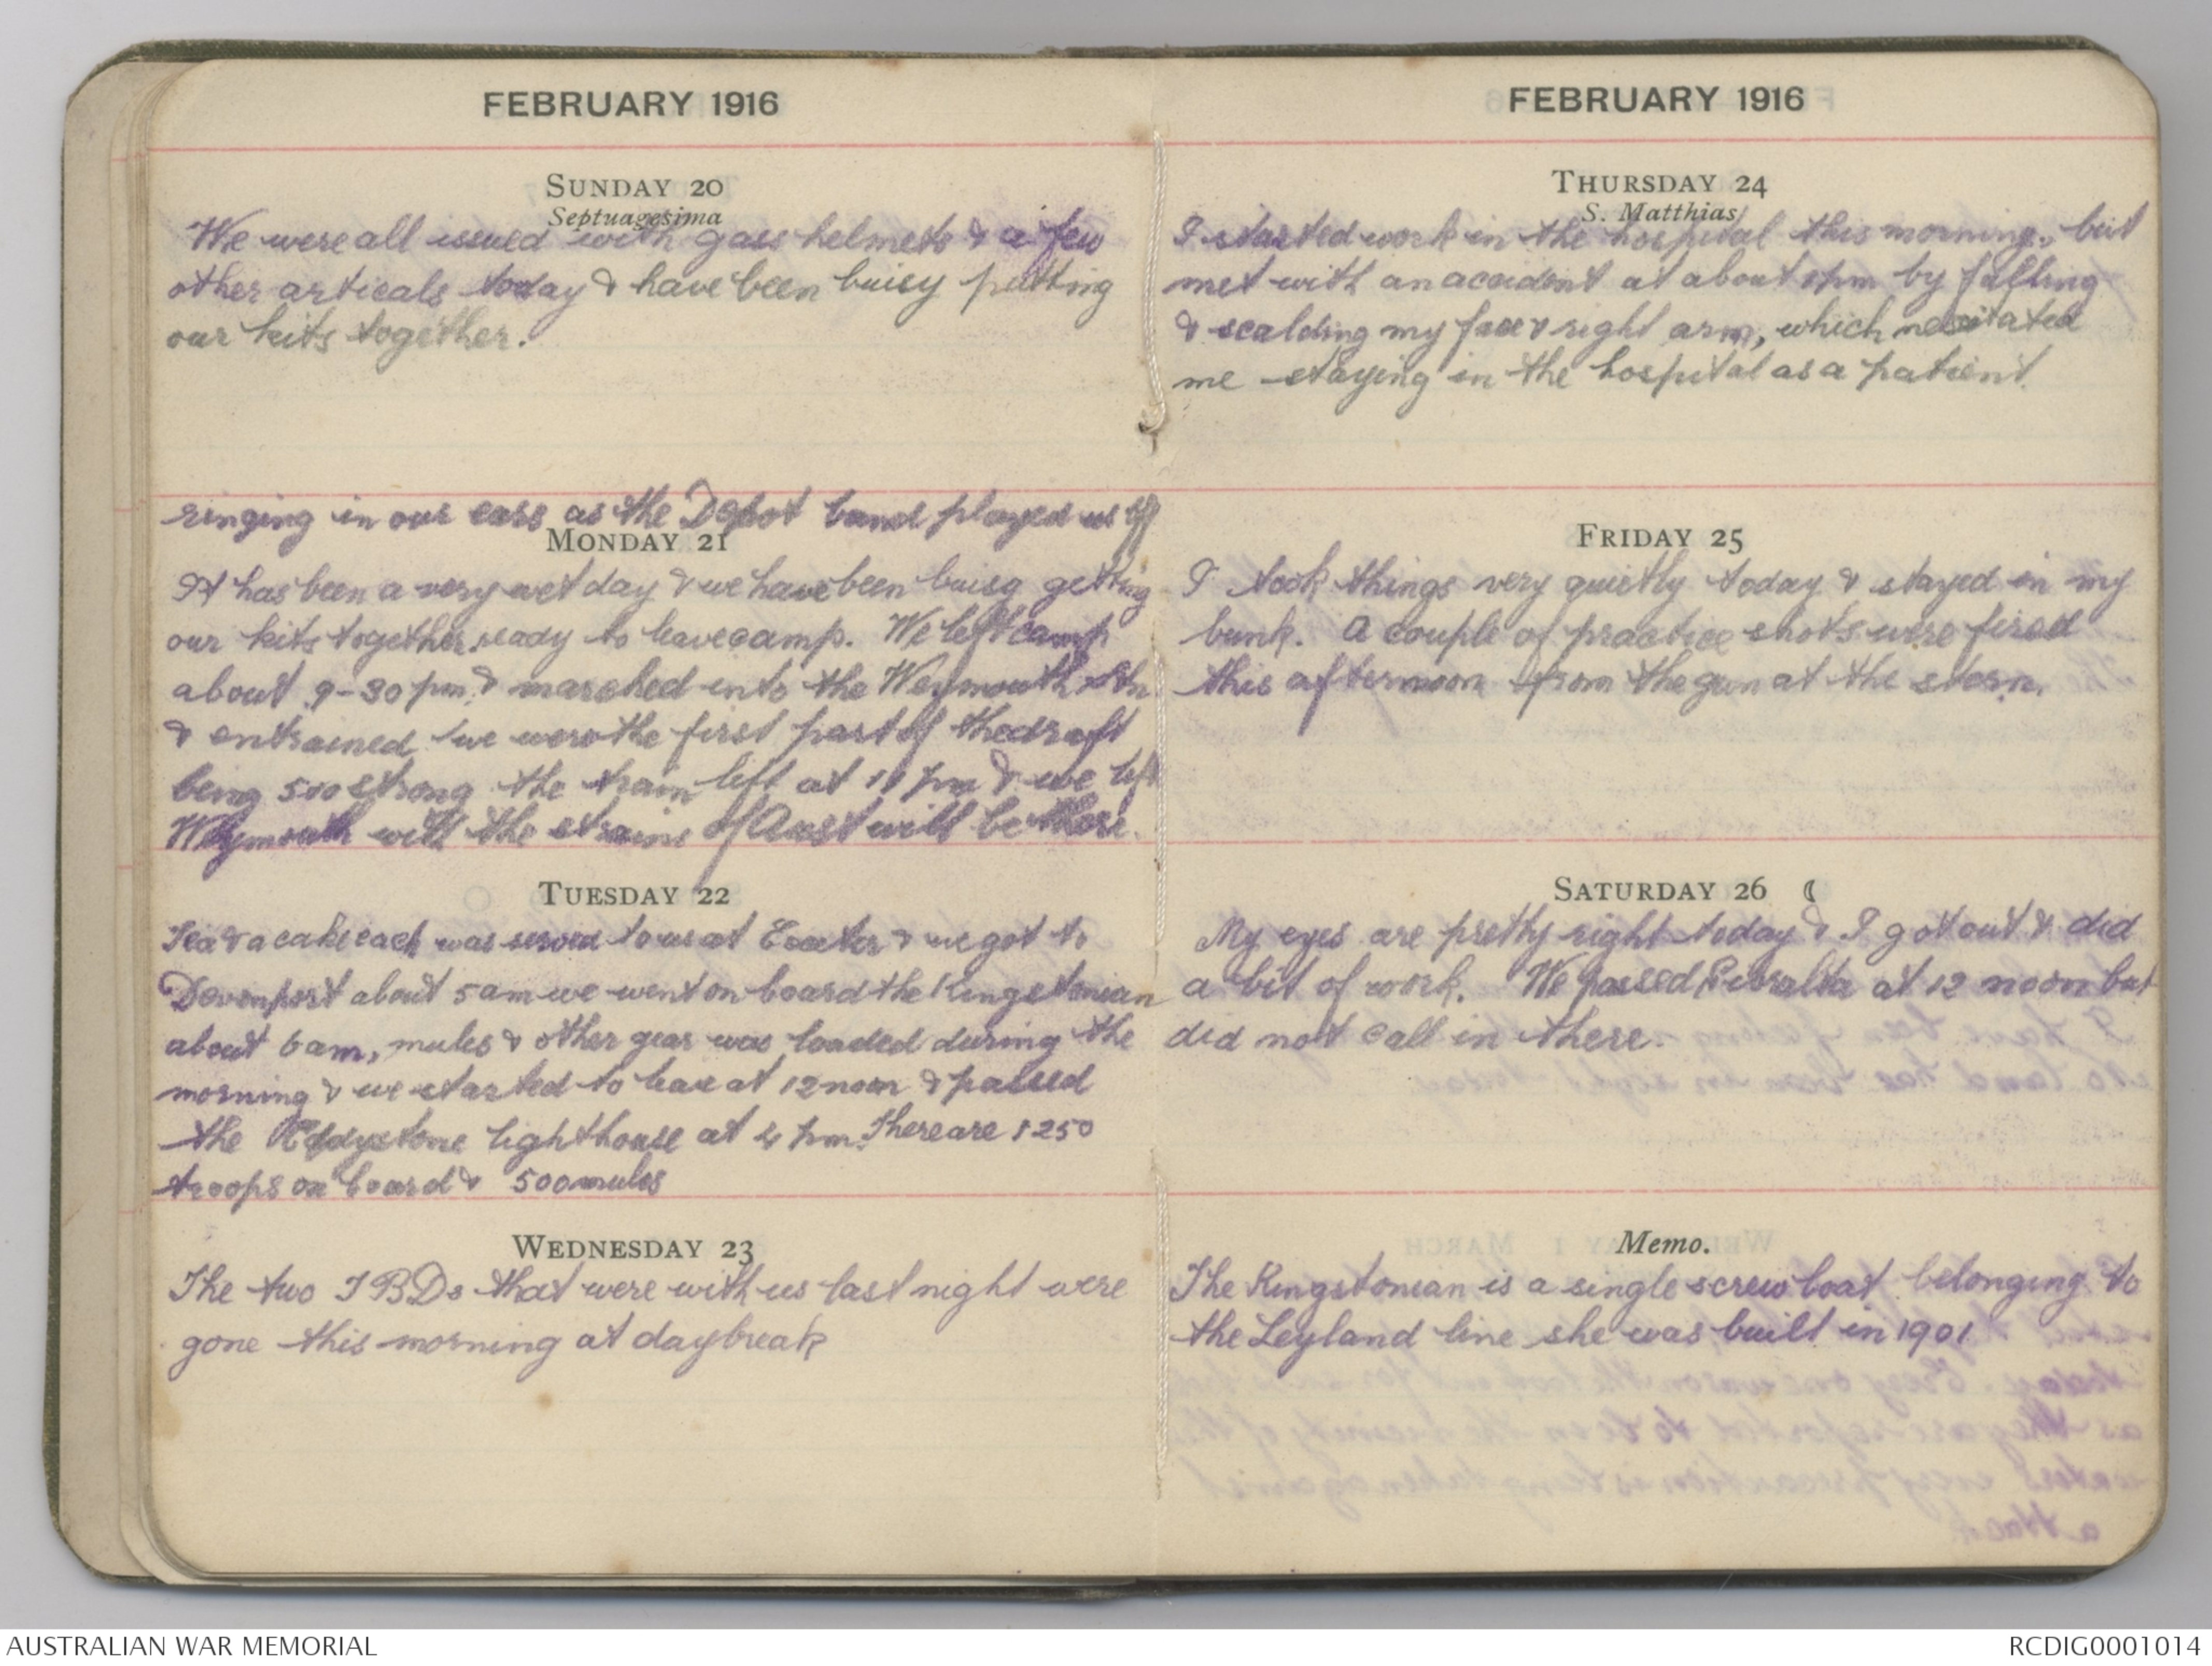 FEBRUARY 1916
SUNDAY 20
Septuagesima
We were all issued with gass helmets & a few
other articals today & have been buisy putting
our kits together.
ringing in our ears as the Depot band played us off
MONDAY 21
It has been a very wet day & we have been buisy getting
our kits together ready to leave camp. We left camp
about 9-30 pm & marched into the Weymouth stn
& entrained we were the first part of the draft
being 500 strong the train left at 11 pm & we left
Weymouth with the strains of Aust will be there.
TUESDAY 22
Tea & a cake each was served to us at Exeter & we got to
Devonport about 5 am we went on board the Kingstonian
about 6 am, mules & other gear was loaded during the
morning & we started to leave at 12 noon & passed
the Eddystone lighthouse at 4 pm. There are 1250
troops on board & 500 mules
WEDNESDAY 23
The two T B Ds that were with us last night were
gone this morning at daybreak
FEBRUARY 1916
THURSDAY 24
S. Matthias
I started work in the hospital this morning, but
met with an accident at about pm by falling
& scalding my face & right arm, which nessitated
me staying in the hospital as a patient.
FRIDAY 25
I took things very quietly today & stayed in my
bunk. A couple of practice shots were fired
this afternoon from the gun at the stern.
SATURDAY 26
My eyes are pretty right today & I got out & did
a bit of work. We passed Gibralta at 12 noon but
did not call in there.
Memo.
The Kingstonian is a single screw boat belonging to
the Leyland line she was built in 1901
AUSTRALIAN WAR MEMORIAL
RCDIG0001014